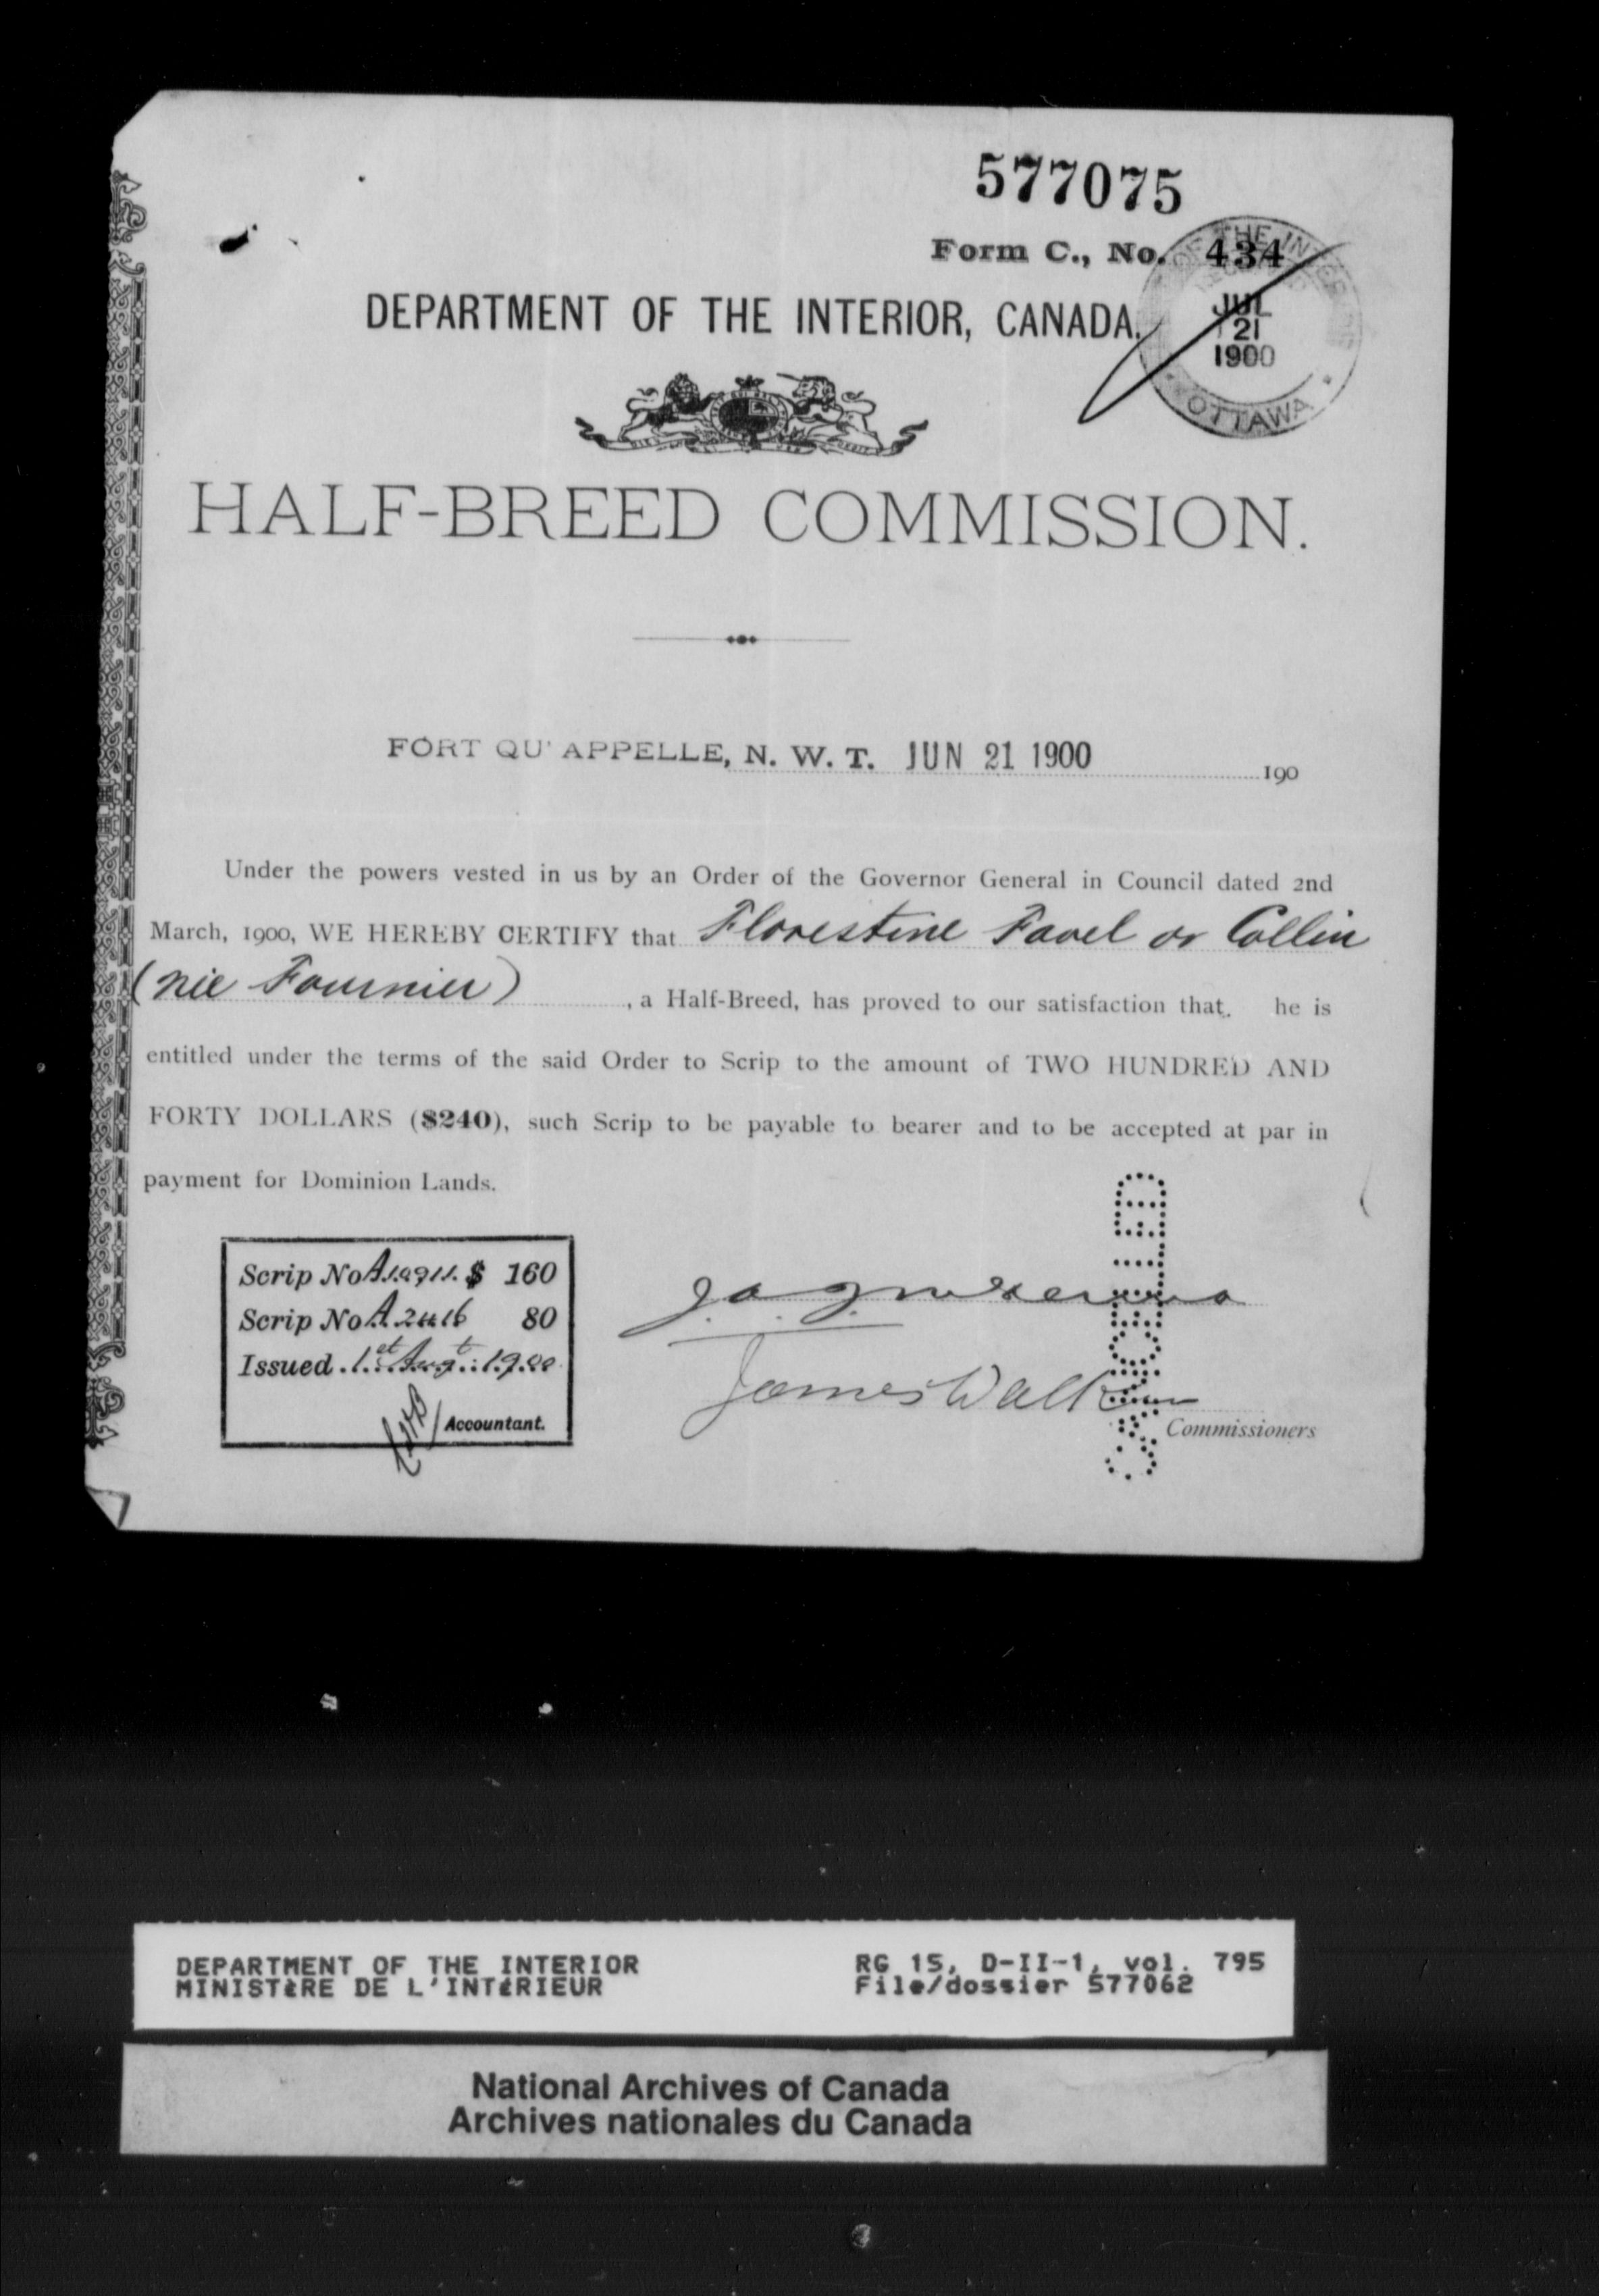 577075
Form C., No. 434
DEPARTMENT OF THE INTERIOR, CANADA.
JUL
21
1900
OTTAWA
HALF-BREED COMMISSION.
FORT QU'APPELLE, N. W. T. JUN 21 1900 190
Under the powers vested in us by an Order of the Governor General in Council dated 2nd
March, 1900, WE HEREBY CERTIFY that Florestine Favel or Collin
(née Fournier) , a Half-Breed, has proved to our satisfaction that he is
entitled under the terms of the said Order to Scrip to the amount of TWO HUNDRED AND
FORTY DOLLARS ($240), such Scrip to be payable to bearer and to be accepted at par in
payment for Dominion Lands.
Scrip No A $ 160
Scrip No A 80
Issued 1st Augt 1900
Accountant.
James Walker
Commissioners
DEPARTMENT OF THE INTERIOR RG 15, D-II-1, vol. 795
MINISTèRE DE L'INTéRIEUR File/dossier 577062
National Archives of Canada
Archives nationales du Canada